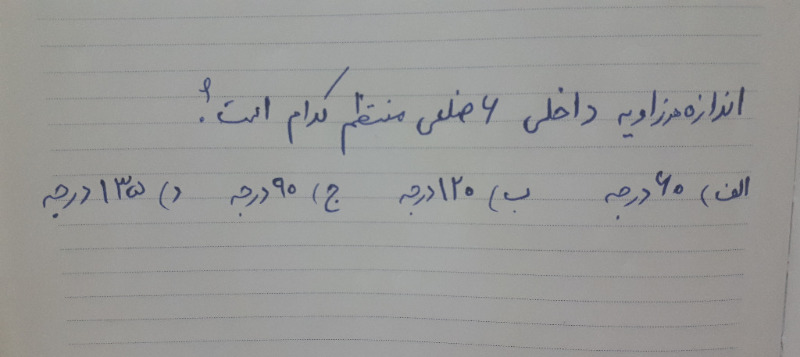 اندازه هر زاویه داخلی ۶ ضلعی منتظم کدام است؟
الف) ۶۰ درجه ب) ۱۲۰ درجه ج) ۹۰ درجه د) ۱۳۵ درجه